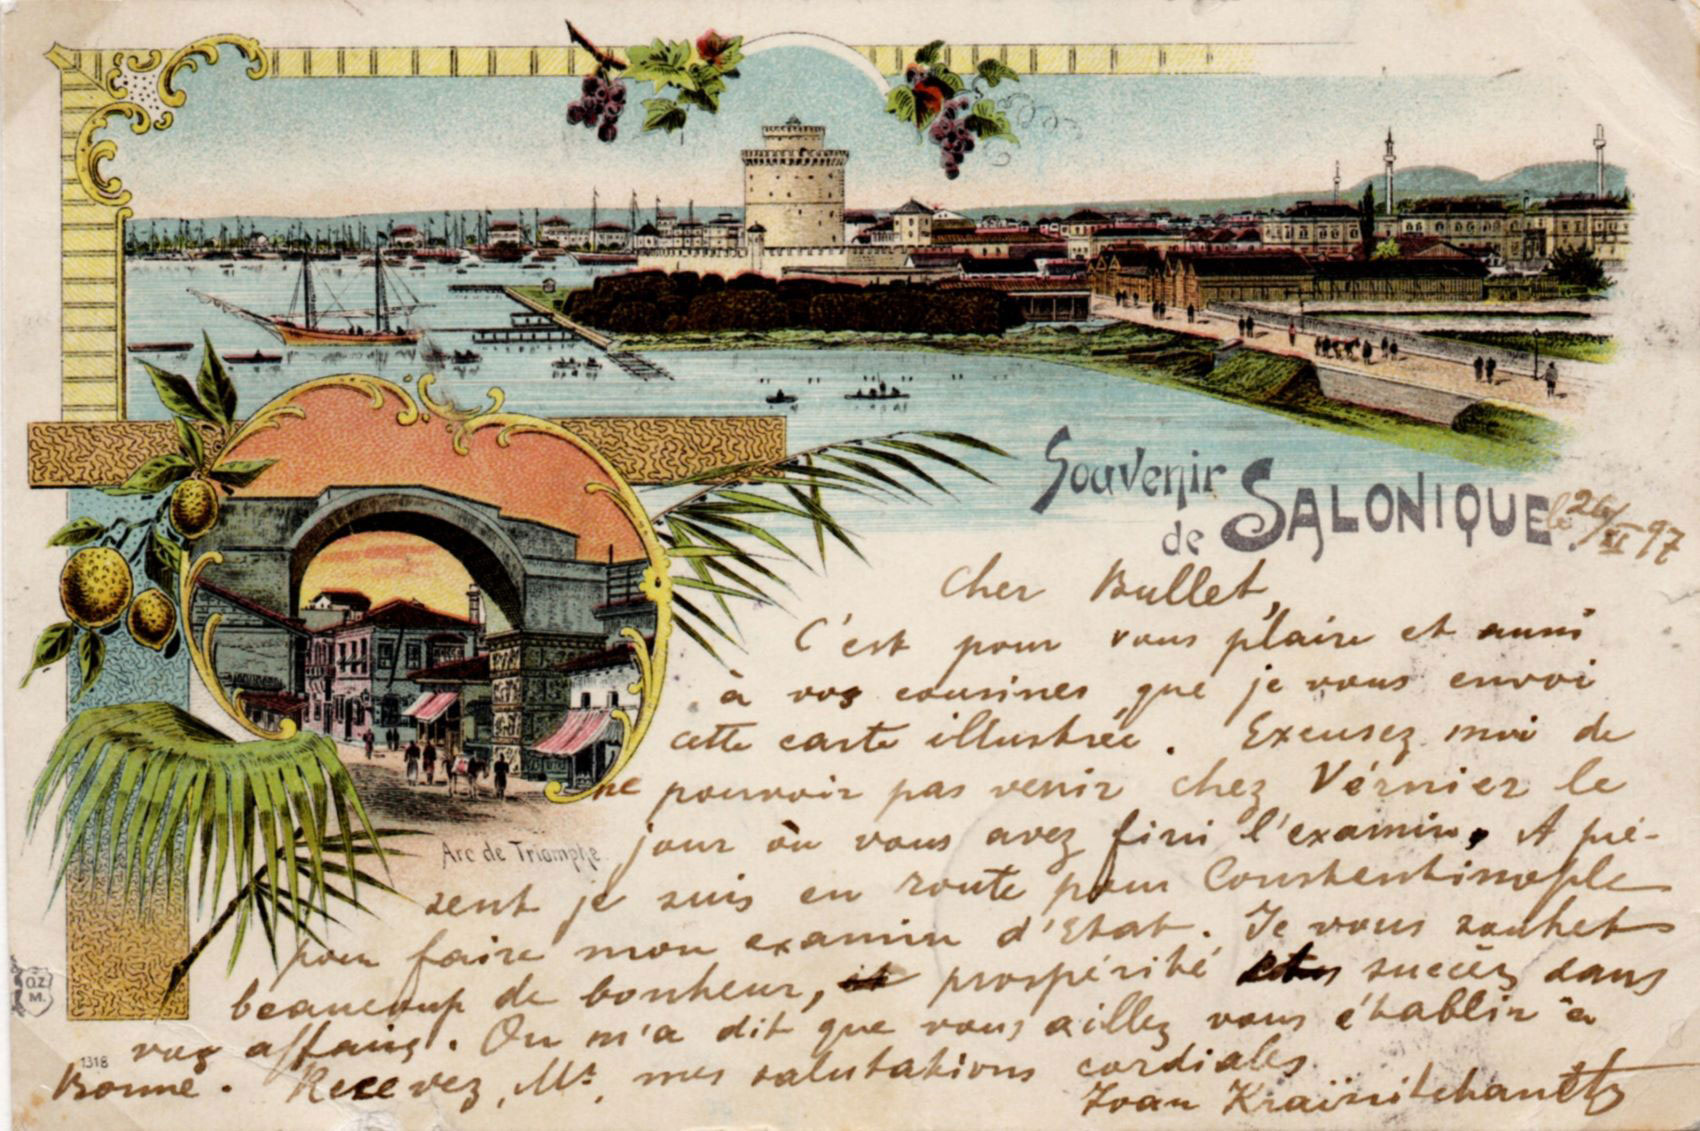 Souvenir
de SALONIQUE.
le 26/XI 97
Cher Bullet,
C'est pour vous plaire et aussi
à vos cousines que je vous envoi
cette carte illustrée. Excusez moi de
ne pouvoir pas venir chez Vérnier le
jour où vous avez fini l'examin. A pré-
Arc de Triomphe
sent je suis en route pour Constentinople
pour faire mon examin d'Etat. Je vous souhet
beaucoup de bonheur, prospérité succèz dans
voz affairs. On m'a dit que vous aillez vous établir à
Bonne. Recevez, Mr, mes salutations cordiales
Ivan
O.Z.
M.
1318